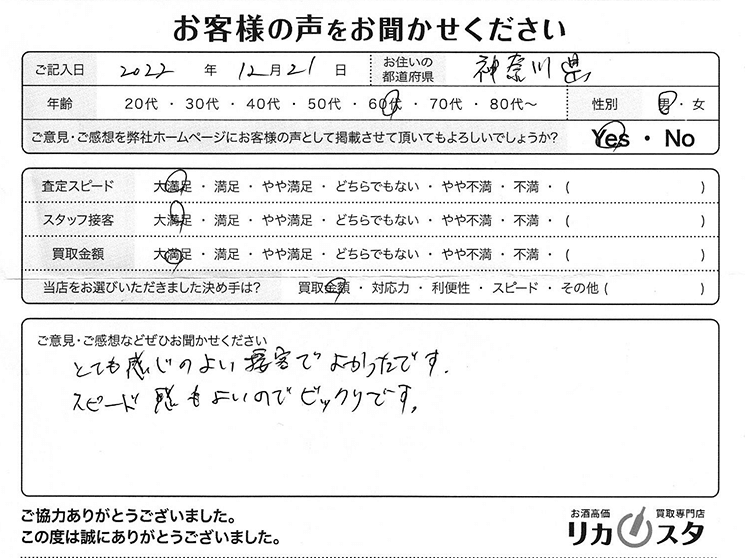 お客様の声をお聞かせください
ご記入日 2022 年 12月21日 お住いの都道府県 神奈川県
年齢 20代・30代・40代・50代・60代・70代・80代～ 性別 男・女
ご意見・ご感想を弊社ホームページにお客様の声として掲載させて頂いてもよろしいでしょうか? Yes・No
査定スピード 大満足・満足・やや満足・どちらでもない・やや不満・不満・( )
スタッフ接客 大満足・満足・やや満足・どちらでもない・やや不満・不満・( )
買取金額 大満足・満足・やや満足・どちらでもない・やや不満・不満・( )
当店をお選びいただきました決め手は? 買取金額・対応力・利便性・スピード・その他( )
ご意見・ご感想などぜひお聞かせください
とても感じのよい接客でよかったです.
スピード感もよいのでビックリです。
ご協力ありがとうございました。
この度は誠にありがとうございました。
お酒高価 買取専門店
リカスタ